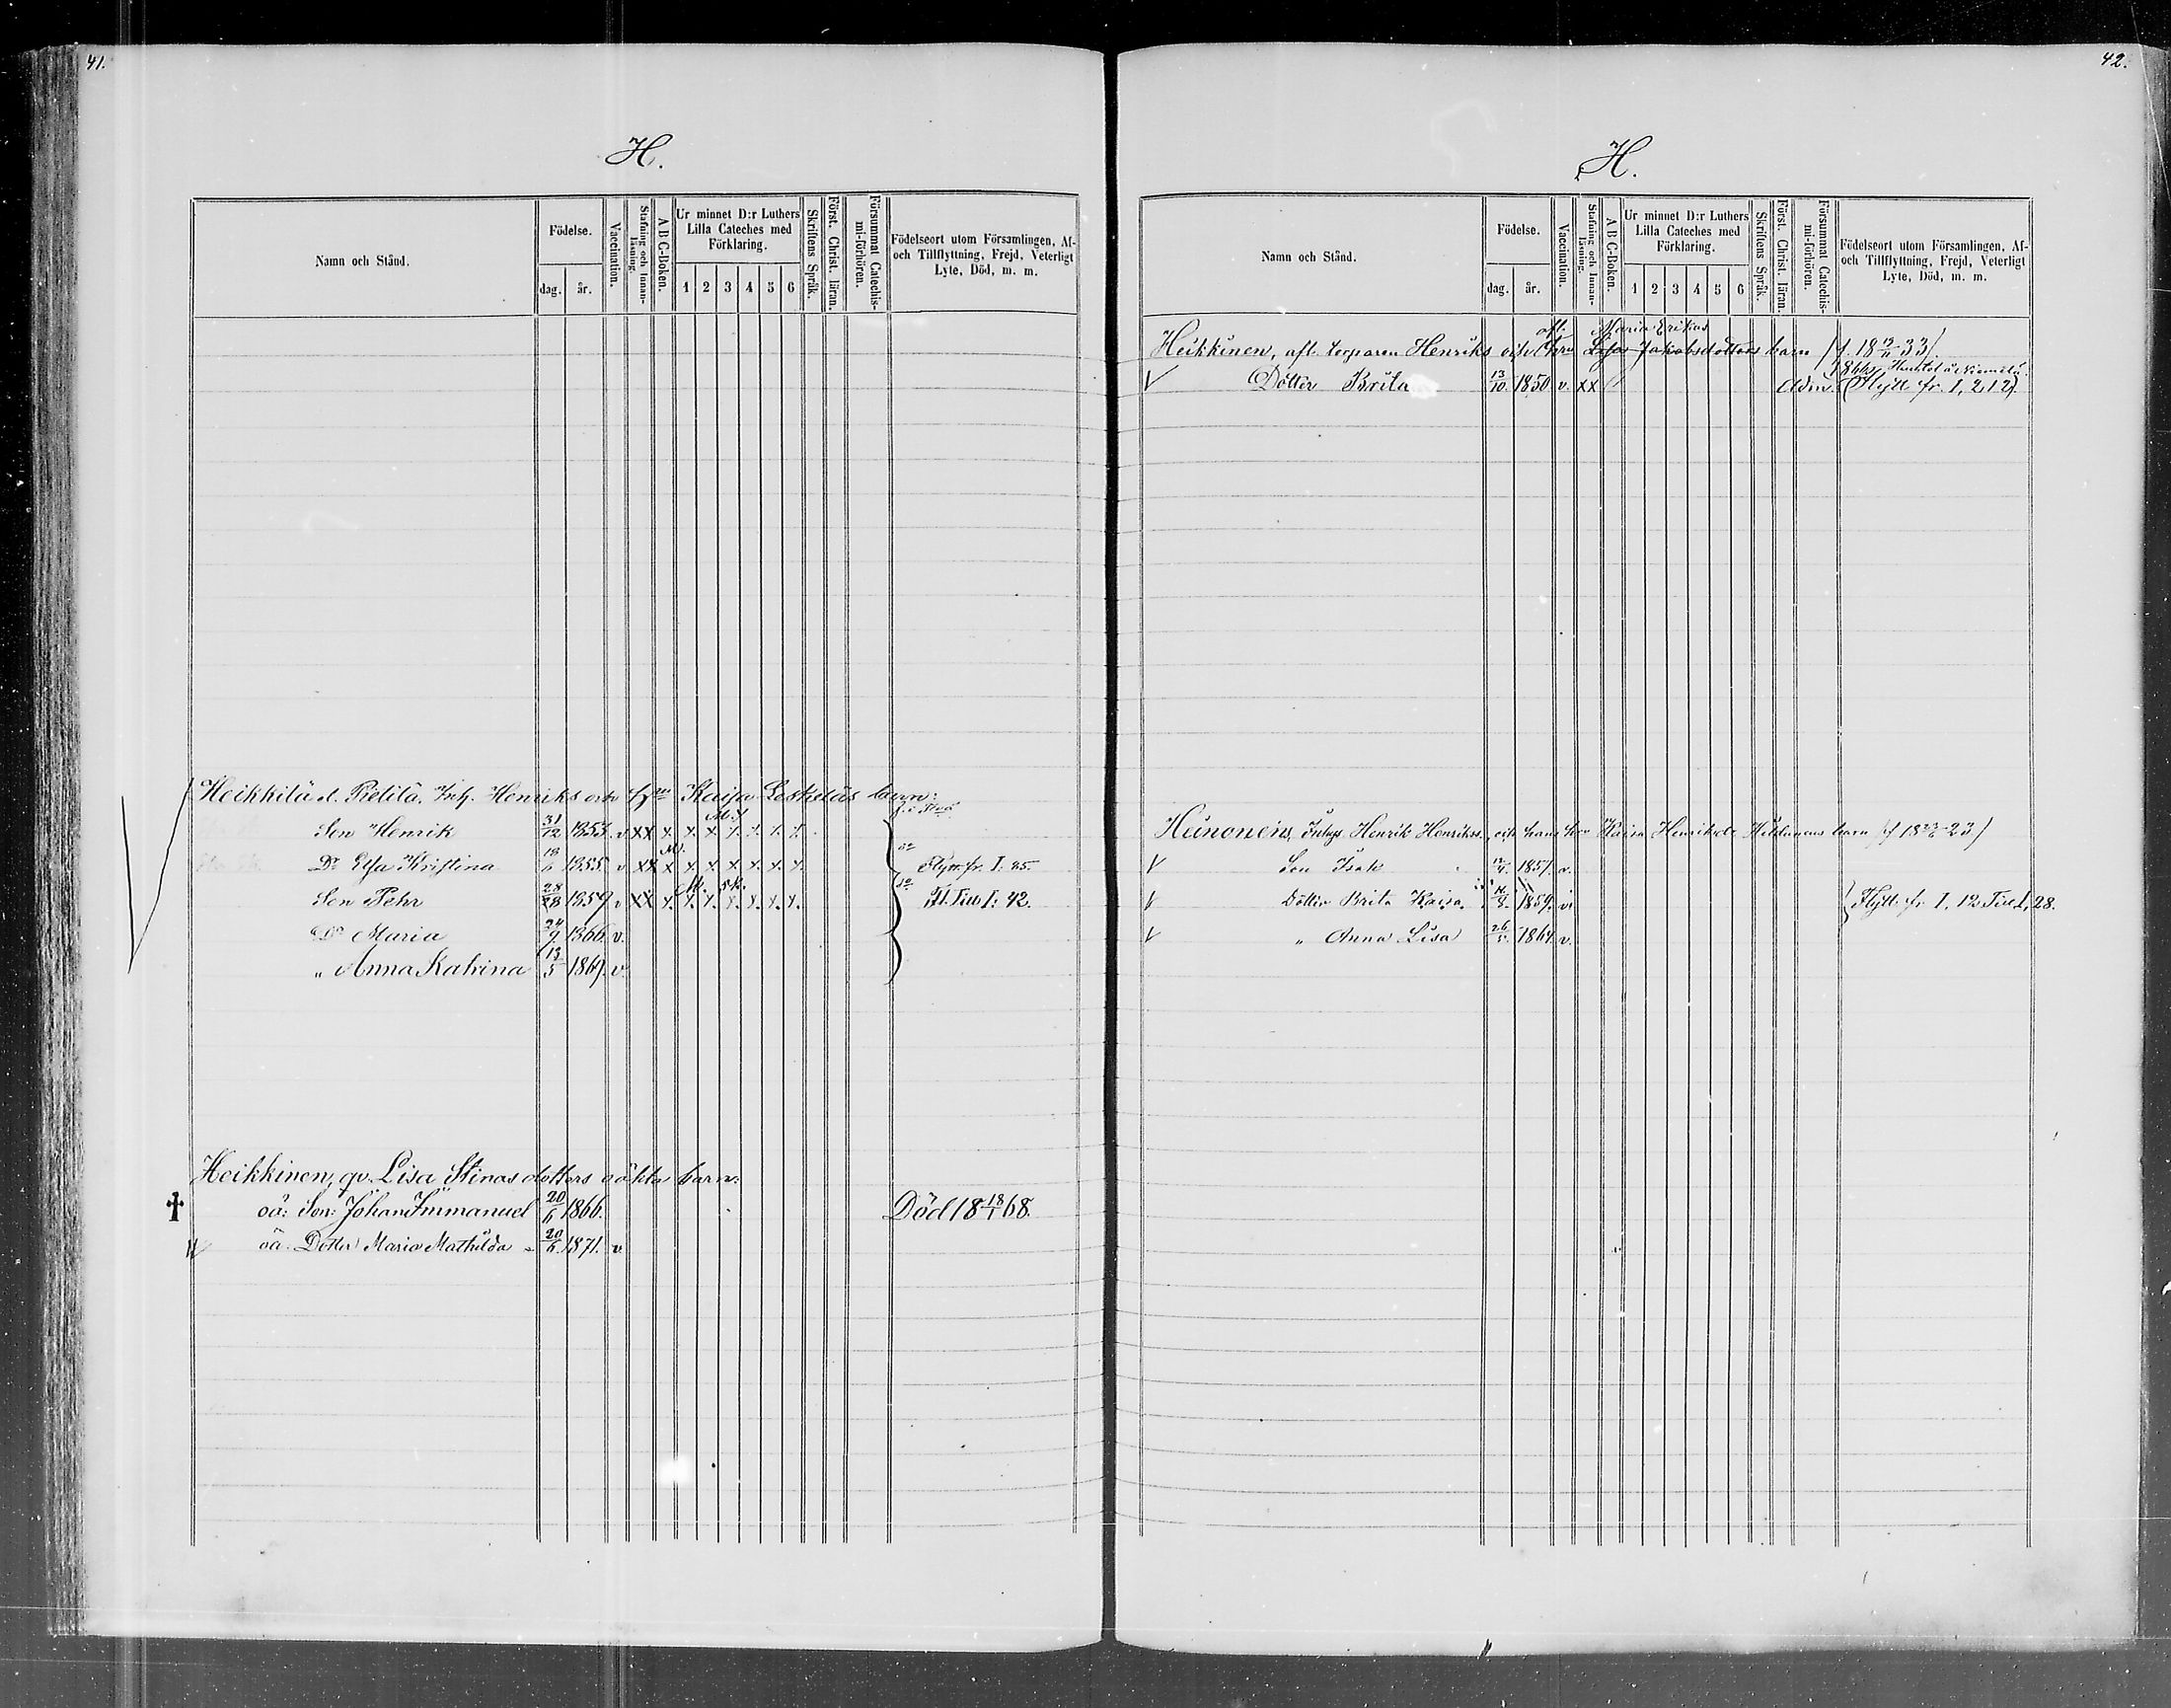 41.
H.
Namn och Stånd.
Födelse.
dag.
år.
Vaccination.
Stafning och Innan-
läsning.
A B C-Boken.
Ur minnet D:r Luthers
Lilla Cateches med
Förklaring.
1 2 3 4 5 6
Skriftens Språk.
Först. Christ. läran.
Försummat Catechis-
mi-förhören.
Födelseort utom Församlingen, Af-
och Tillflyttning, Frejd, Veterligt
Lyte, Död, m. m.
Heikkilä d. Henriks och Kaisa barn:
Son Henrik 31/12 1853. v XX X. X. X X. X. X. X.
Dr Elsa Kristina 18/6 1855. v XX X X X X X. X. X. Flytt. fr. I: 85.
Son Pehr 1859 v XX X. X. X. X. X. X. X. Fl. Till I: 42.
Do Maria 24/9 1866. v.
" Anna Katrina 13/5 1869. v.
Heikkinen, qv. Lisa Stinas dotters oäkta barn:
oä: Son: Johan Immanuel 20/6 1866. Död 18 18/1 68.
oä. Dotter Maria Mathilda 20/6. 1871. v
42.
H.
Namn och Stånd.
Födelse.
dag.
år.
Vaccination.
Stafning och Innan-
läsning.
A B C-Boken.
Ur minnet D:r Luthers
Lilla Cateches med
Förklaring.
1 2 3 4 5 6
Skriftens Språk.
Först. Christ. läran.
Försummat Catechis-
mi-förhören.
Födelseort utom Församlingen, Af-
och Tillflyttning, Frejd, Veterligt
Lyte, Död, m. m.
afl. Maria Erikas
Heikkinen, afl. torparen Henriks och Hru Lisas Jakobsdotters barn
V Dotter Brita 13/10 1850 v. XX Adm. (Flytt. fr. I, 212).
Heinonens, Inhys Henrik Henrikss. och hans hru Kaisa Henriksdr barn
V Son Isak 1857. v.
V Dotter Brita Kaisa 1859. v. Flytt. fr I, 12 Till I, 28.
V " Anna Lisa 26/5. 1864. v.